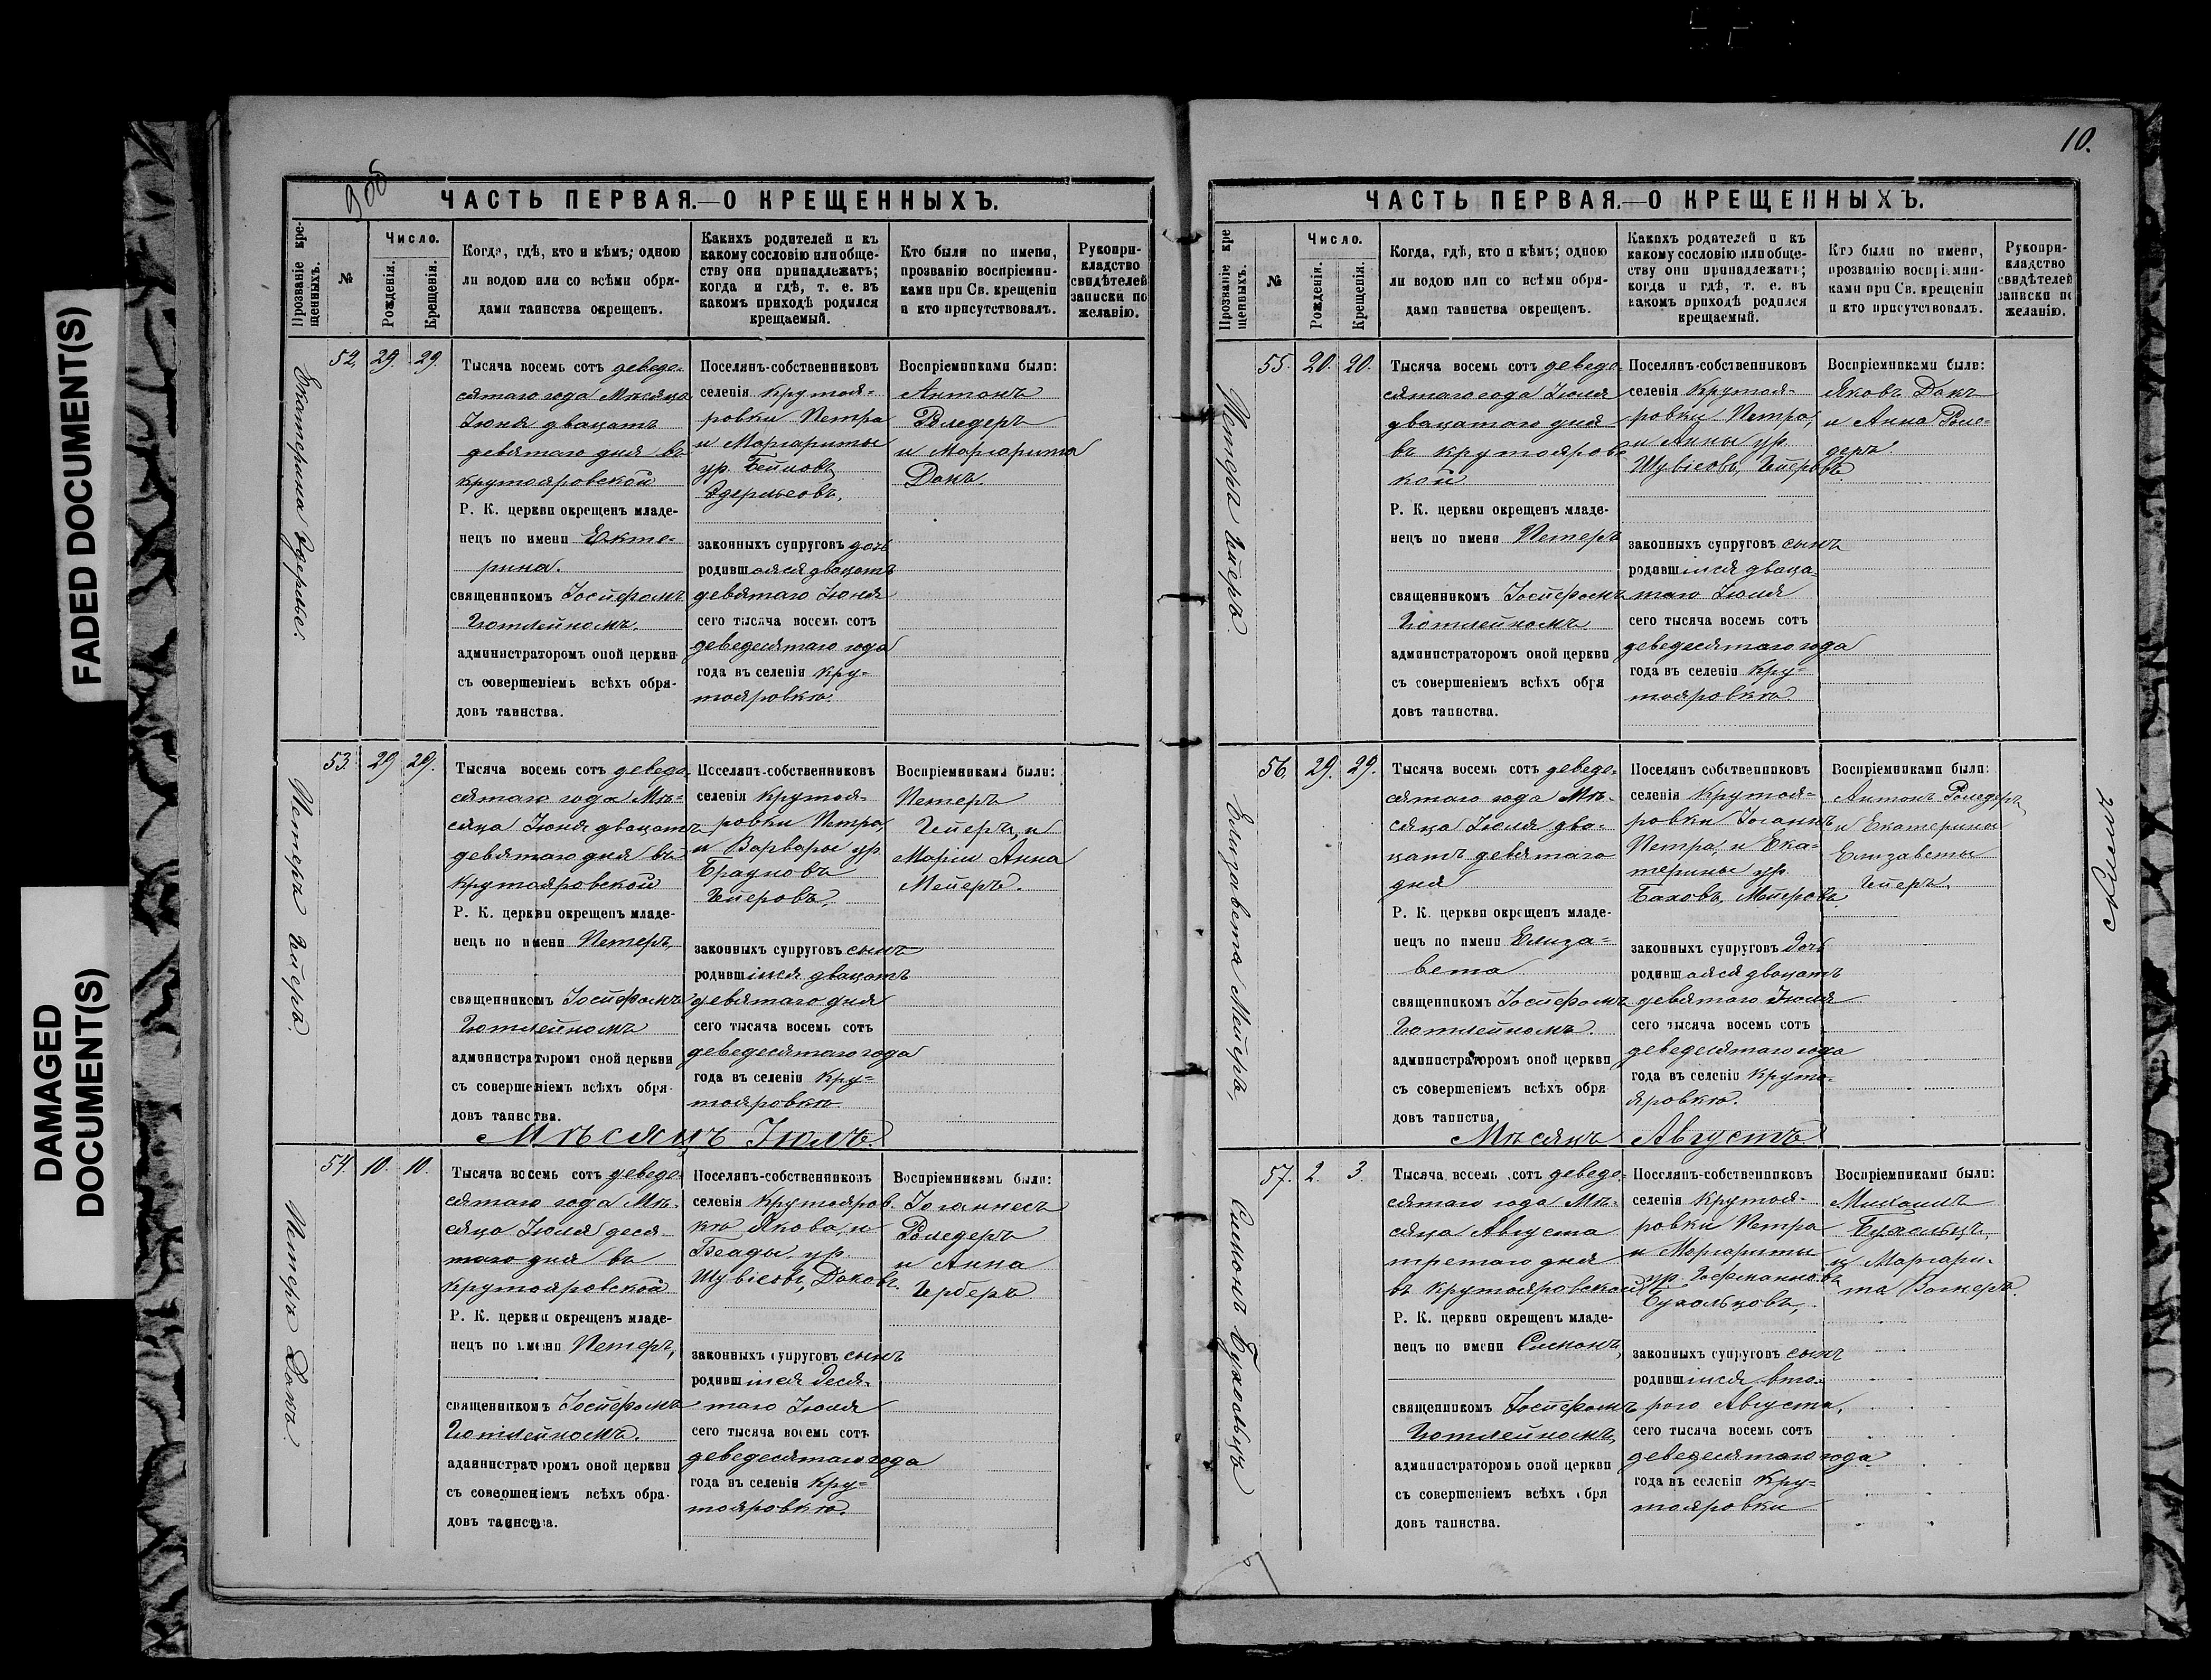 FADED DOCUMENT(S)
DAMAGED
DOCUMENT(S)
9 об
ЧАСТЬ ПЕРВАЯ.—О КРЕЩЕННЫХЪ.
Прозваніе кре-
щенныхъ.
№
Число.
Рожденія.
Крещенія.
Когда, гдѣ, кто и кѣмъ; одною
ли водою или со всѣми обря-
дами таинства окрещенъ.
Какихъ родителей и къ
какому сословію или обще-
ству они принадлежатъ;
когда и гдѣ, т. е. въ
какомъ приходѣ родился
крещаемый.
Кто были по имени,
прозванію воспріемни-
ками при Св. крещеніи
и кто присутствовалъ.
Рукопри-
кладство
свидѣтелей
записки по
желанію.
52. 29. 29.
Тысяча восемь сотъ деведе-
сятаго года Мѣсяца
Іюня двацатъ
девятаго дня въ
крутояровской
Р. К. церкви окрещенъ младе-
нецъ по имени Екте-
рина.
священникомъ Іосифомъ
Готлейномъ.
администраторомъ оной церкви
съ совершеніемъ всѣхъ обря-
довъ таинства.
Поселянъ-собственниковъ
селенія Крутоя-
ровки Петра
и Маргариты
ур.
законныхъ супруговъ дочь
родившаяся двацатъ
девятаго Іюня
сего тысяча восемь сотъ
деведесятаго года
года въ селеніи Кру-
тояровкѣ.
Воспріемниками были:
Антонъ
Роледеръ
и Маргарита
Докъ.
53. 29 29.
Петеръ Гейеръ.
Тысяча восемь сотъ деведе-
сятаго года Мѣ-
сяца Іюня двацатъ
девятаго дня въ
Крутояровской
Р. К. церкви окрещенъ младе-
нецъ по имени Петеръ,
священникомъ Іосифомъ
Готлейномъ
администраторомъ оной церкви
съ совершеніемъ всѣхъ обря-
довъ таинства.
Поселянъ-собственниковъ
селенія Крутоя-
ровки Петра,
и Варвары ур.
Брауновъ
Гейеровъ,
законныхъ супруговъ сынъ
родившійся двацатъ
девятаго дня
сего тысяча восемь сотъ
деведесятаго года
года въ селеніи Кру-
тояровкѣ
Воспріемниками были:
Петеръ
Гейеръ, и
Марія Анна
Мейеръ.
Мѣсяцъ Іюль.
54. 10. 10.
Петеръ Докъ.
Тысяча восемь сотъ деведе-
сятаго года Мѣ-
сяца Іюля деся-
таго дня въ
Крутояровской
Р. К. церкви окрещенъ младе-
нецъ по имени Петеръ,
священникомъ Іосифомъ
Готлейномъ.
администраторомъ оной церкви
съ совершеніемъ всѣхъ обря-
довъ таинства.
Поселянъ-собственниковъ
селенія Крутояров-
кѣ Якова, и
Беады ур.
Шувіесовъ, Доковъ.
законныхъ супруговъ сынъ
родившійся деся-
таго Іюля
сего тысяча восемь сотъ
деведесятаго года
года въ селеніи Кру-
тояровкѣ.
Воспріемниками были:
Іоганнесъ
Роледеръ
и Анна
Герберъ
10.
ЧАСТЬ ПЕРВАЯ.—О КРЕЩЕННЫХЪ.
Прозваніе кре
щенныхъ.
№
Число.
Рожденія.
Крещенія.
Когда, гдѣ, кто и кѣмъ; одною
ли водою или со всѣми обря-
дами таинства окрещенъ.
Какихъ родителей и къ
какому сословію или обще-
ству они принадлежатъ;
когда и гдѣ, т. е. въ
какомъ приходѣ родился
крещаемый.
Кто были по имени,
прозванію воспріемни-
ками при Св. крещеніи
и кто присутствовалъ.
Рукопри-
кладство
свидѣтелей
записки по
желанію.
55. 20. 20.
Петеръ Гейеръ.
Тысяча восемь сотъ деведе-
сятаго года Іюля
двацатаго дня
въ крутояровс
кой
Р. К. церкви окрещенъ младе-
нецъ по имени Петеръ
священникомъ Іосифомъ
Готлейномъ
администраторомъ оной церкви
съ совершеніемъ всѣхъ обря
довъ таинства.
Поселянъ-собственниковъ
селенія Крутоя-
ровки Петра,
и Анны ур.
Шувіесовъ, Гейеровъ.
законныхъ супруговъ сынъ
родившійся дваца-
таго Іюля
сего тысяча восемь сотъ
деведесятаго года
года въ селеніи Кру-
тояровкѣ
Воспріемниками были:
Яковъ Докъ
и Анна Роле-
деръ.
56. 29. 29.
Елизавета Мейеръ,
Тысяча восемь сотъ деведе-
сятаго года Мѣ-
сяца Іюля два-
цатъ девятаго
дня
Р. К. церкви окрещенъ младе-
нецъ по имени Елиза-
вета
священникомъ Іосифомъ
Готлейномъ.
администраторомъ оной церкви
съ совершеніемъ всѣхъ обря
довъ таинства,
Поселянъ собственниковъ
селенія Крутоя-
ровки Іоаннъ
Петра, и Ека-
терины ур.
Баховъ, Мейеровъ
законныхъ супруговъ дочь
родившаяся двацатъ
девятаго Іюля
сего тысяча восемь сотъ
деведесятаго года
года въ селеніи Круто-
яровкѣ.
Воспріемниками были:
Антонъ Роледеръ
и Екатерины
Елизаветы
Гейеръ.
Мѣсяцъ Августъ.
57. 2. 3.
Симонъ Бухольцъ
Тысяча восемь сотъ деведе-
сятаго года Мѣ-
сяца Августа
третаго дня
въ Крутояровской
Р. К. церкви окрещенъ младе-
нецъ по имени Симонъ,
священникомъ Іосифомъ
Готлейномъ,
администраторомъ оной церкви
съ совершеніемъ всѣхъ обря
довъ таинства.
Поселянъ-собственниковъ
селенія Крутоя-
ровки Петра
и Маргариты
ур. Гофманновъ
Бухольцовъ,
законныхъ супруговъ сынъ
родившійся вто-
рого Августа,
сего тысяча восемь сотъ
деведесятаго года
года въ селеніи Кру-
тояровки
Воспріемниками были:
Михаилъ
Бухольцъ
и Маргари-
та Вагнеръ.